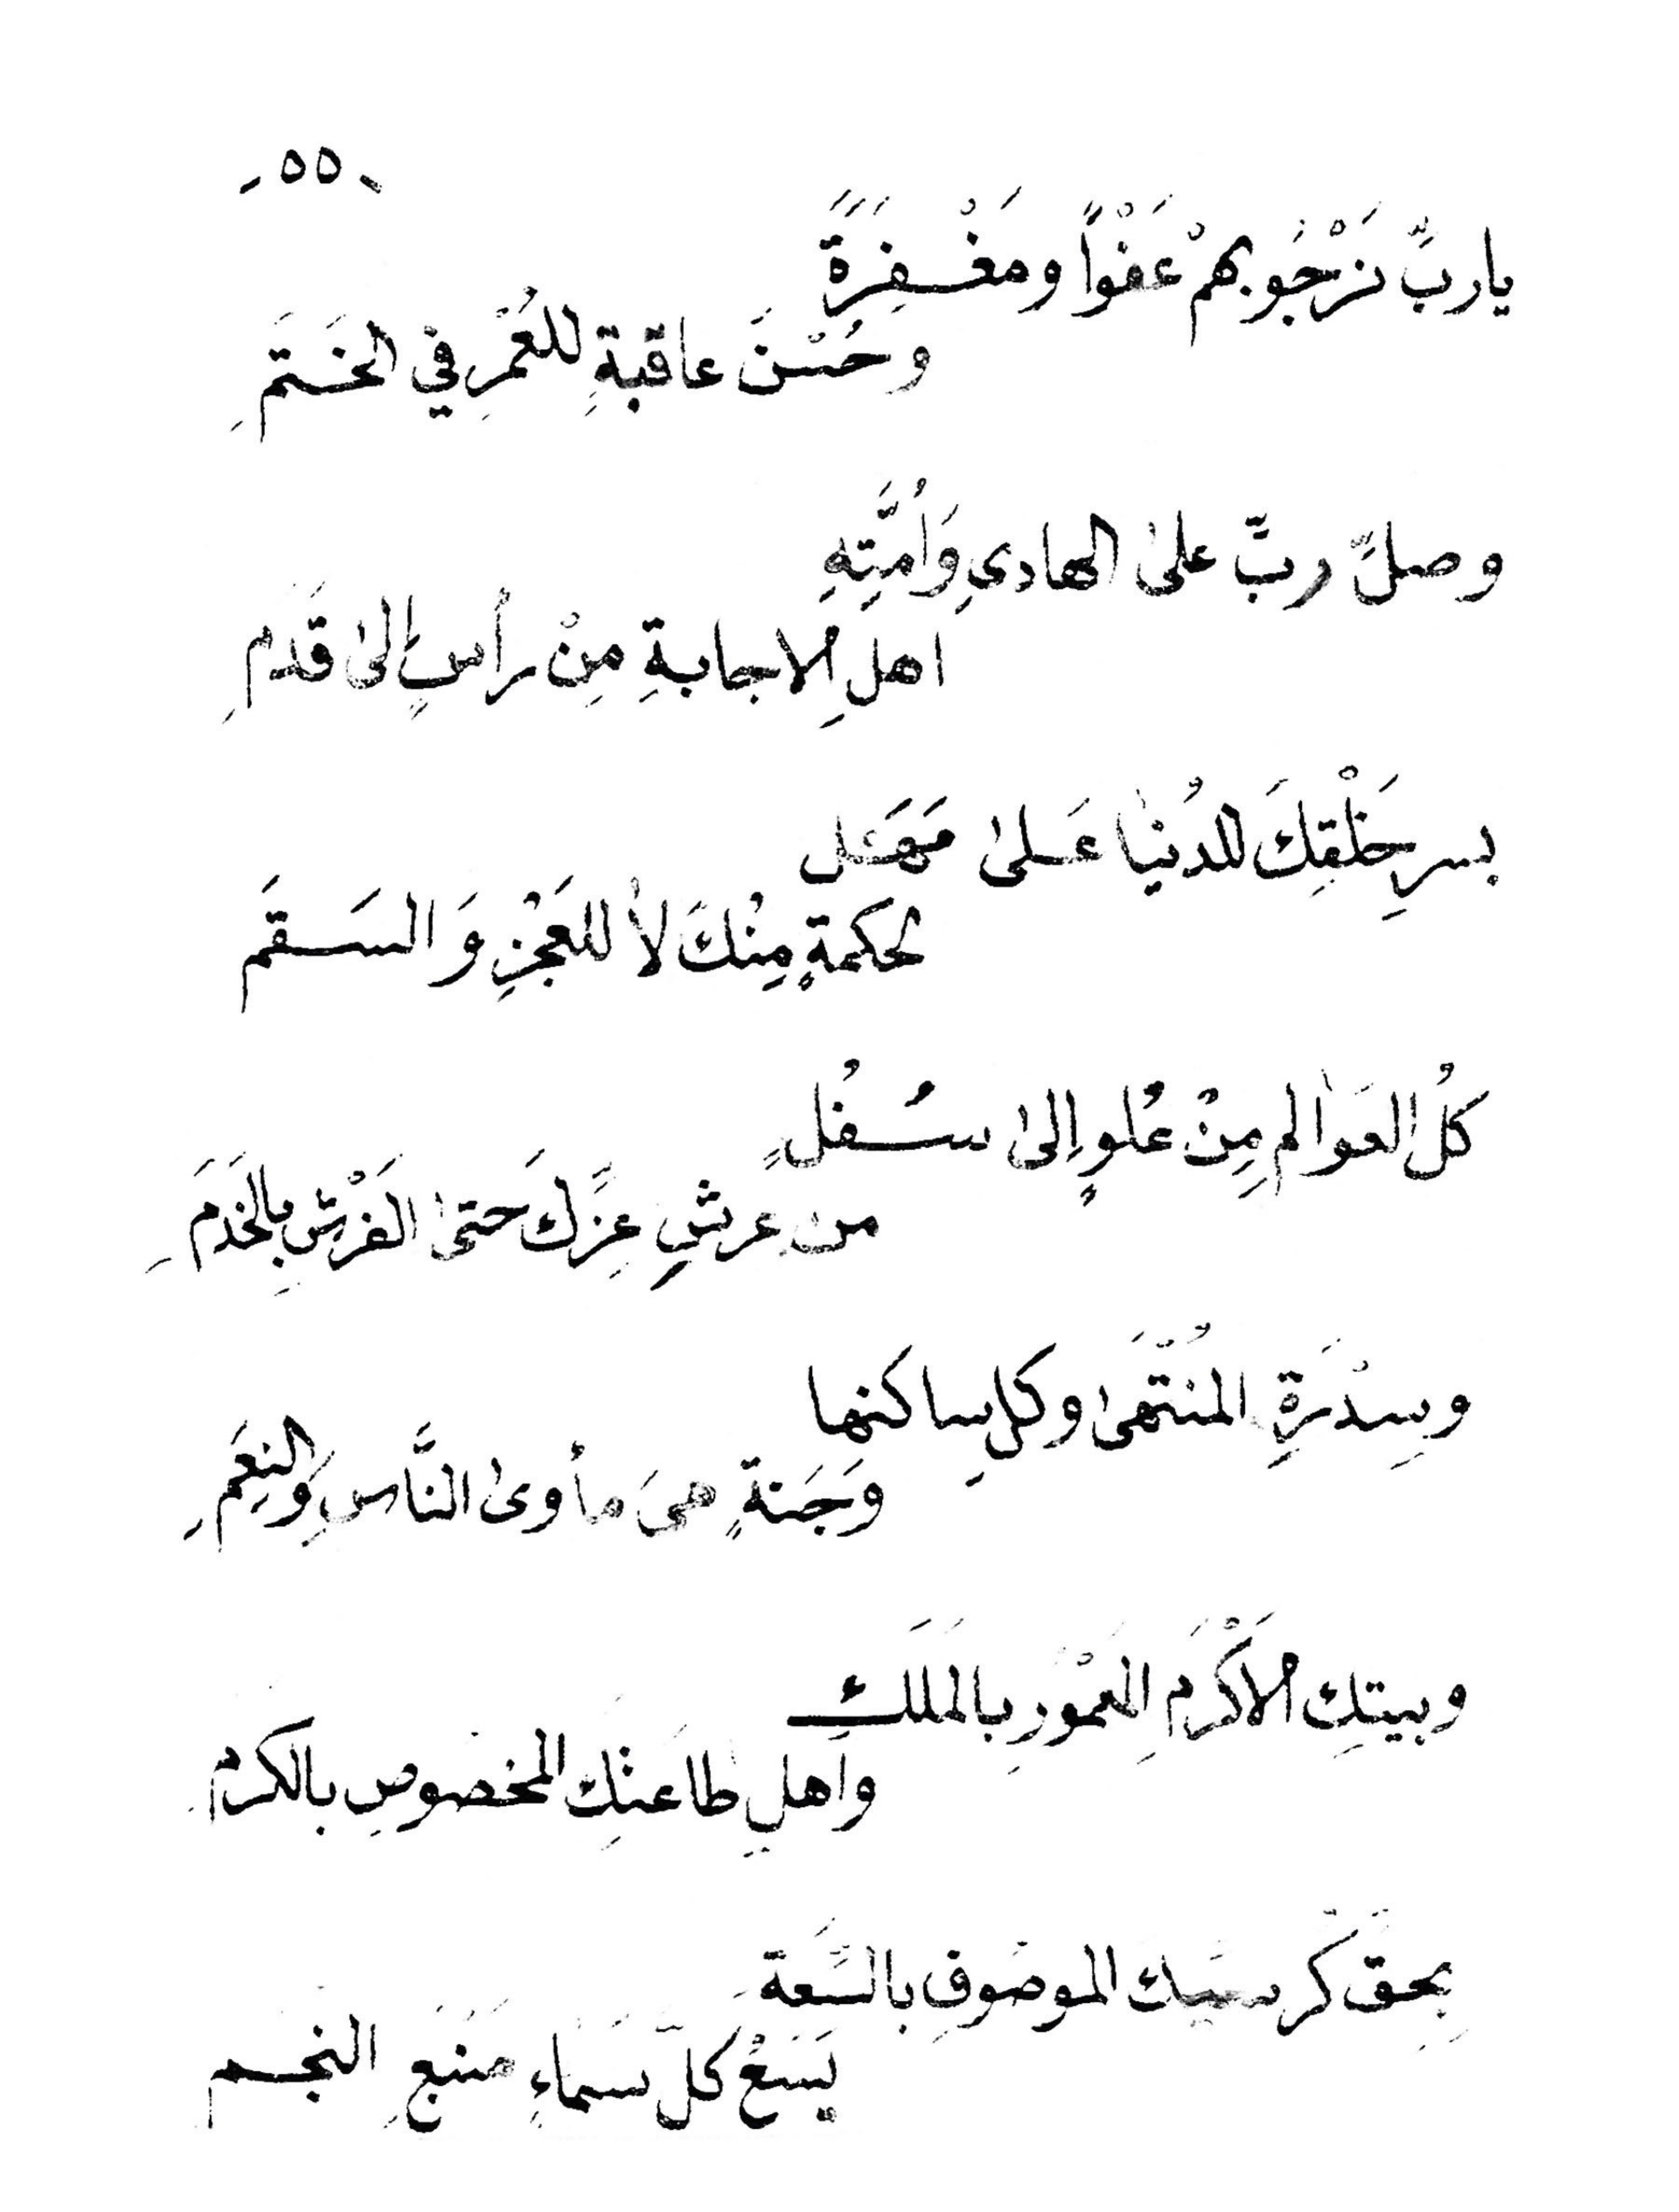 - ٥٥ -
يا ربِّ نَرْجُو بهمْ عَفْواً ومَغْفِرَةً
وحُسْنَ عاقبةِ للعُمْرِ في الخَتَمِ
وصلِّ ربِّ على الهاديِ وَأُمَّتِهِ
اهلِ الاجابةِ مِنْ رأسٍ إلى قَدَمِ
بسرِ خَلْقِكَ للدُنْيا عَلى مَهَل
لحكمةٍ مِنْكَ لا للعَجْزِ وَالسَقَم
كلُ العَوالمِ مِنْ عُلوٍ إلى سُفْلٍ
من عرشِ عِزِّكَ حَتى الفَرْشِ بالخَدَمِ
وسِدْرَةِ المُنْتَهَى وكلِ ساكنها
وَجَنةٍ هيَ مأوى النَّاسِ وَالنِعَمِ
وبيتِك الأَكْرَمِ المَعمْورِ بالمَلَكِ
واهلِ طاعتِك المخصُوصِ بالكرمِ
بِحقِّ كرسيك الموصُوفِ بالسَّعَةِ
يَسَعْ كلَّ سَماءٍ مَنْبَعِ النجم